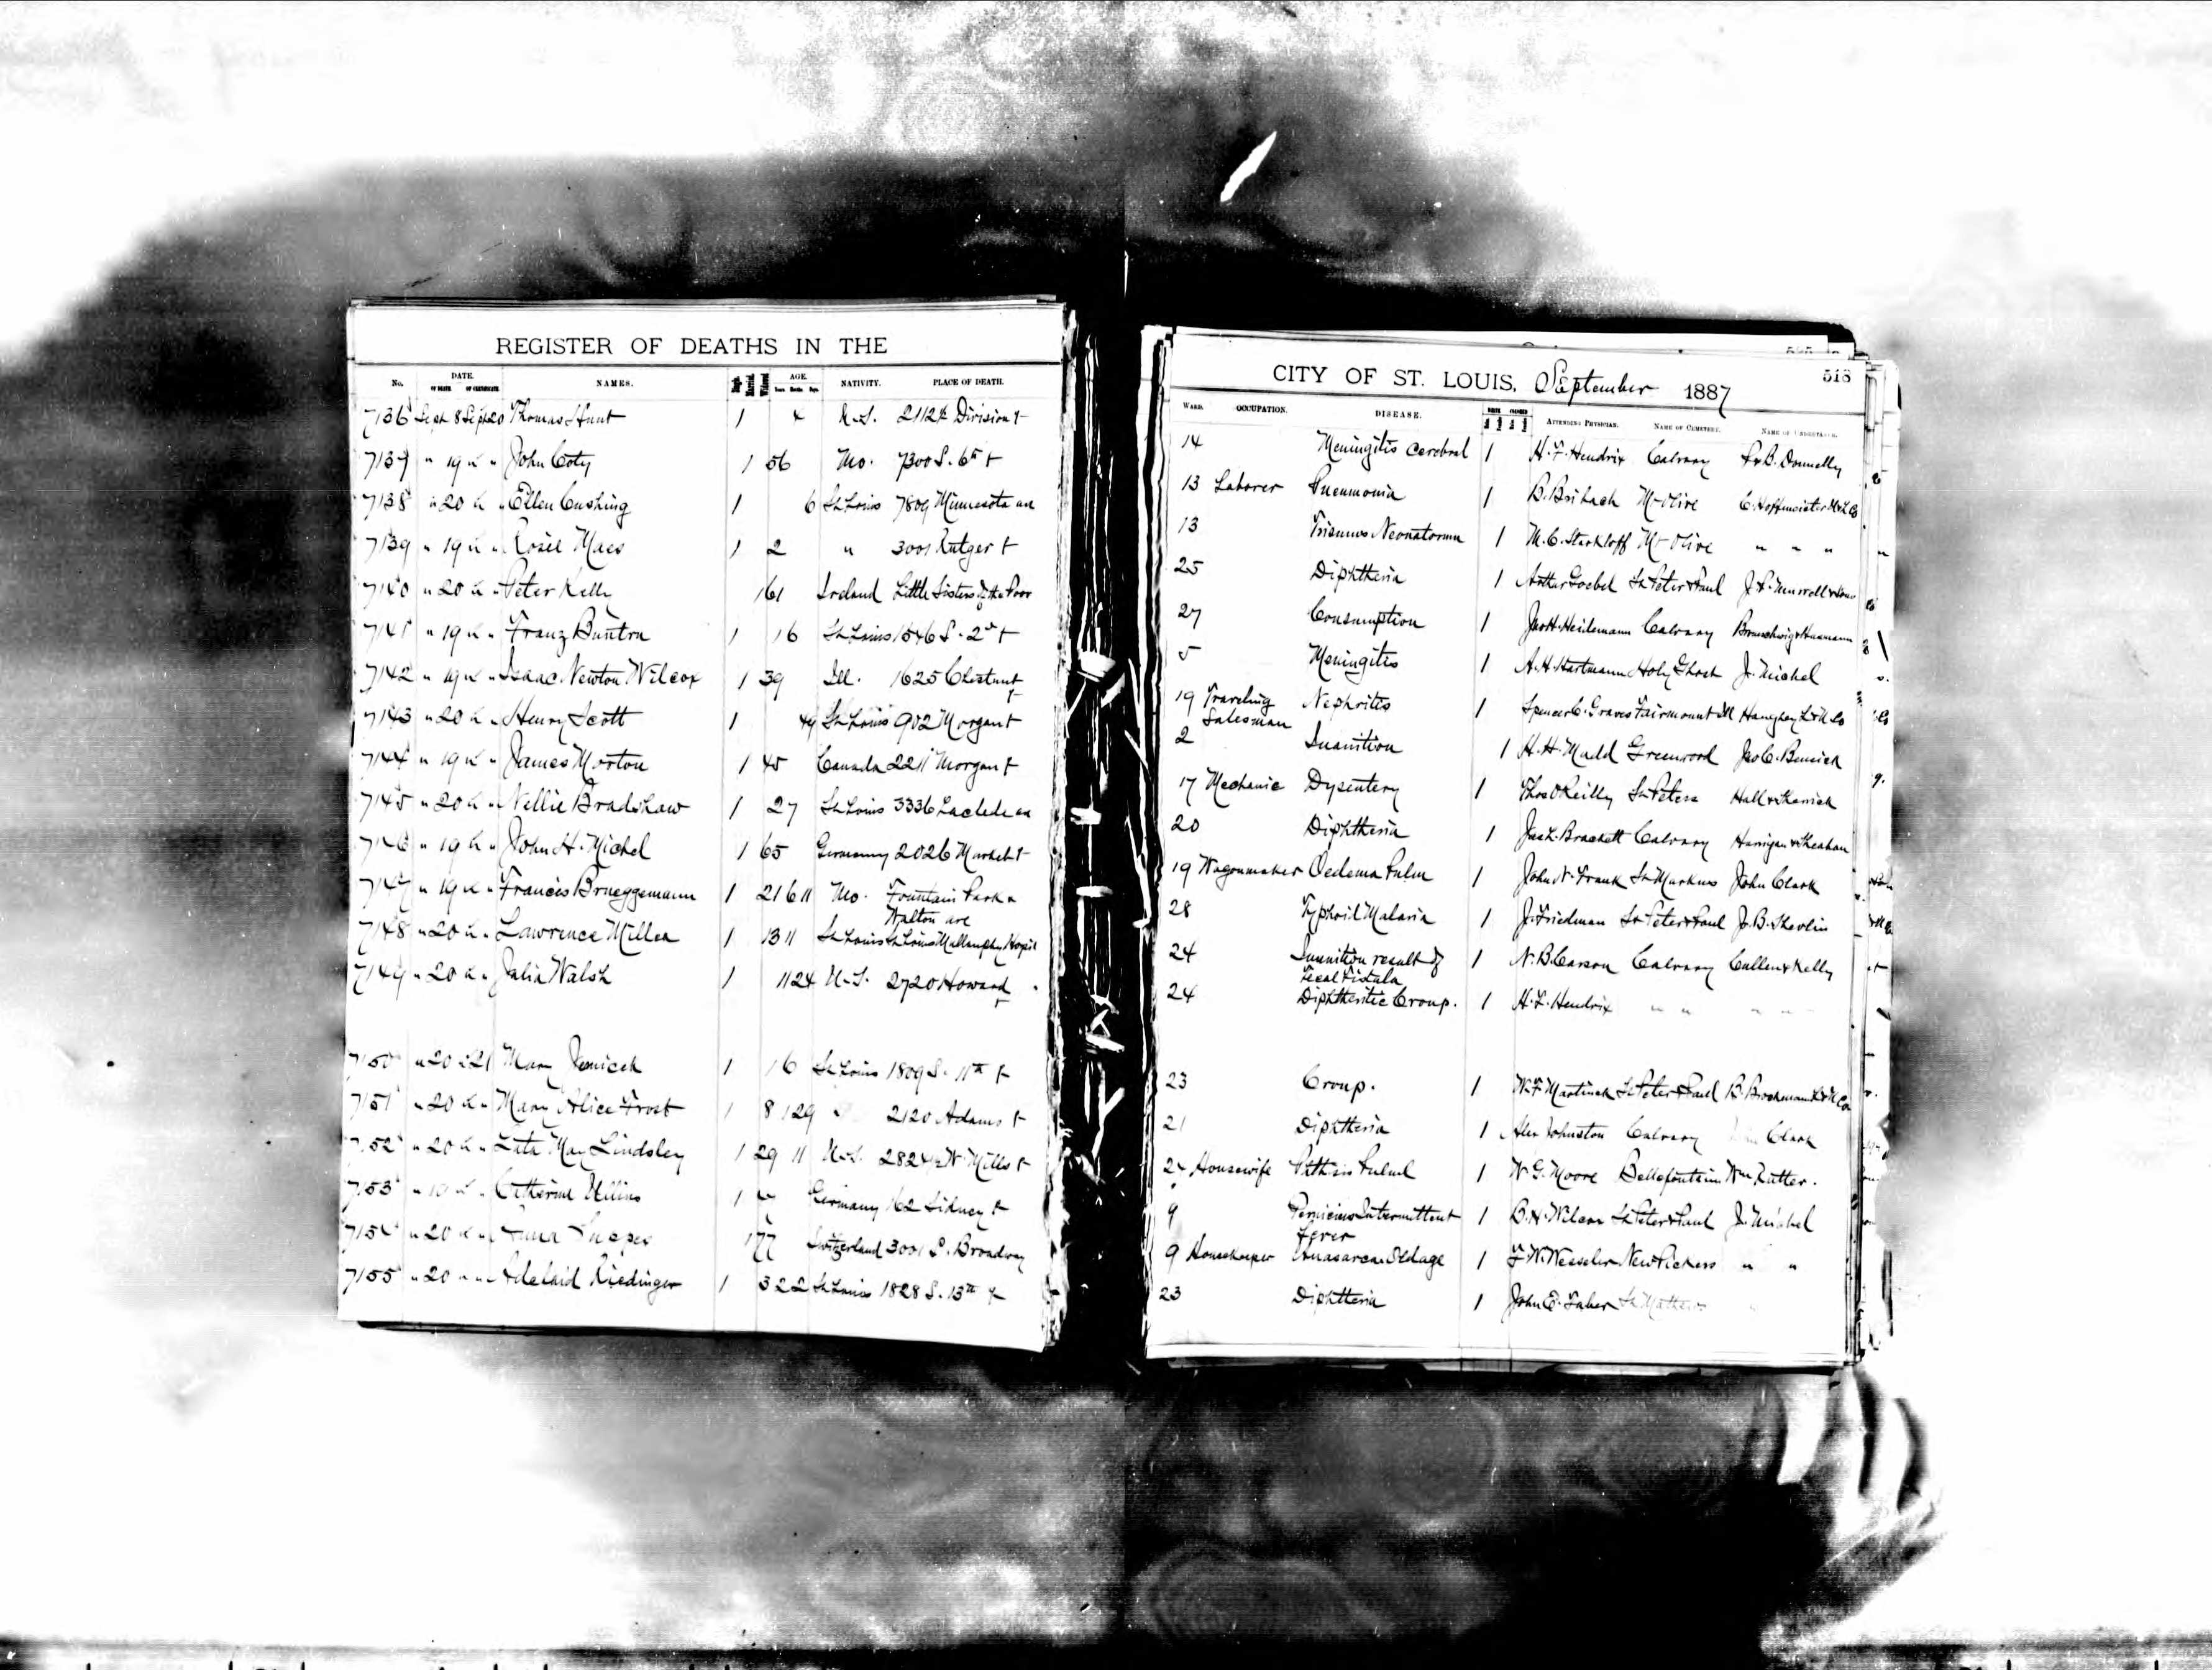 REGISTER OF DEATHS IN THE
No. DATE. OF DEATH. OF CERTIFICATE. NAMES. AGE. NATIVITY. PLACE OF DEATH.
7136 Sept 8 Sept 20 Thomas Hunt 1 4 U.S. 2112 Division
7137 " 19 " " John Coty 1 56 Mo. 7300 S. 6th
7138 " 20 " " Ellen Cushing 1 6 St Louis 7809 Minnesota av
7139 " 19 " " Rosie Maes 1 2 " 3001 Rutger
7140 " 20 " " Peter Kelly 1 61 Ireland Little Sisters of the Poor
7141 " 19 " " Franz 1 1 6 St Louis 1546 S. 2nd
7142 " 19 " " Isaac Newton Wilcox 1 39 Ill. 1625 Chestnut
7143 " 20 " " Henry Scott 1 St Louis 902 Morgan
7144 " 19 " " James Morton 1 45 Canada 2211 Morgan
7145 " 20 " " Nellie Bradshaw 1 2 7 St Louis 3336 Laclede av
7146 " 19 " " John H. Michel 1 65 Germany 2026 Market
7147 " 19 " " Francis Brueggemann 1 21 6 11 Mo. Fountain Park &
Walton ave
7148 " 20 " " Lawrence Miller 1 13 11 St Louis St Louis Mullanphy Hospit
7149 " 20 " " Julia Walsh 1 1 1 24 U.S. 2720 Howard
7150 " 20 " 21 Mary 1 1 6 St Louis 1809 S. 11th
7151 " 20 " " Mary Alice Frost 1 8 1 29 " 2120 Adams
7152 " 20 " " May Lindsley 1 29 11 U.S. 2824 1/2 N. Mills
7153 " " " Catherine 1 Germany 162 Sidney
7154 " 20 " " 1 77 Switzerland 3001 S. Broadway
7155 " 20 " " Adelaid Riedinger 1 3 2 2 St Louis 1828 S. 13th
CITY OF ST. LOUIS, September 1887 518
WARD. OCCUPATION. DISEASE. ATTENDING PHYSICIAN. NAME OF CEMETERY. NAME OF UNDERTAKER.
14 Meningitis cerebral 1 H. F. Hendrix Calvary & B. Donnelly
13 Laborer Pneumonia 1 B. Bribach Mt Olive C. Hoffmeister
13 Trismus Neonatorum 1 M. C. Starkloff Mt Olive " " "
25 Diphtheria 1 Arthur Goebel St Peter & Paul
27 Consumption 1 Jno H. Heidemann Calvary
5 Meningitis 1 A. H. Hartmann Holy Ghost J. Michel
19 Traveling Salesman Nephritis 1 Spencer C. Graves Fairmount Ill
2 Inanition 1 H. H. Mudd Greenwood
17 Mechanic Dysentery 1 Thos O'Reilly St Peters
20 Diphtheria 1 Calvary
19 Wagonmaker Oedema Pulm 1 John N. Frank St Markus John Clark
28 Typhoid Malaria 1 J. Friedman St Peter & Paul J. B. Shevlin
24 Inanition result of
Fecal Fistula 1 N. B. Carson Calvary Cullen & Kelly
24 Diphtheritic Croup. 1 H. F. Hendrix " " " "
23 Croup. 1 St Peter & Paul
21 Diphtheria 1 Alex Johnston Calvary John Clark
24 Housewife Phthisis Pulml 1 W. G. Moore Bellefontain Wm Rutter.
9 Pernicious Intermittent
Fever 1 B. H. Wilson St Peter & Paul J. Michel
9 Housekeeper Anasarca Old age 1 F. W. Wesseler New Pickers " "
23 Diphtheria 1 John E. Faber St Matthews